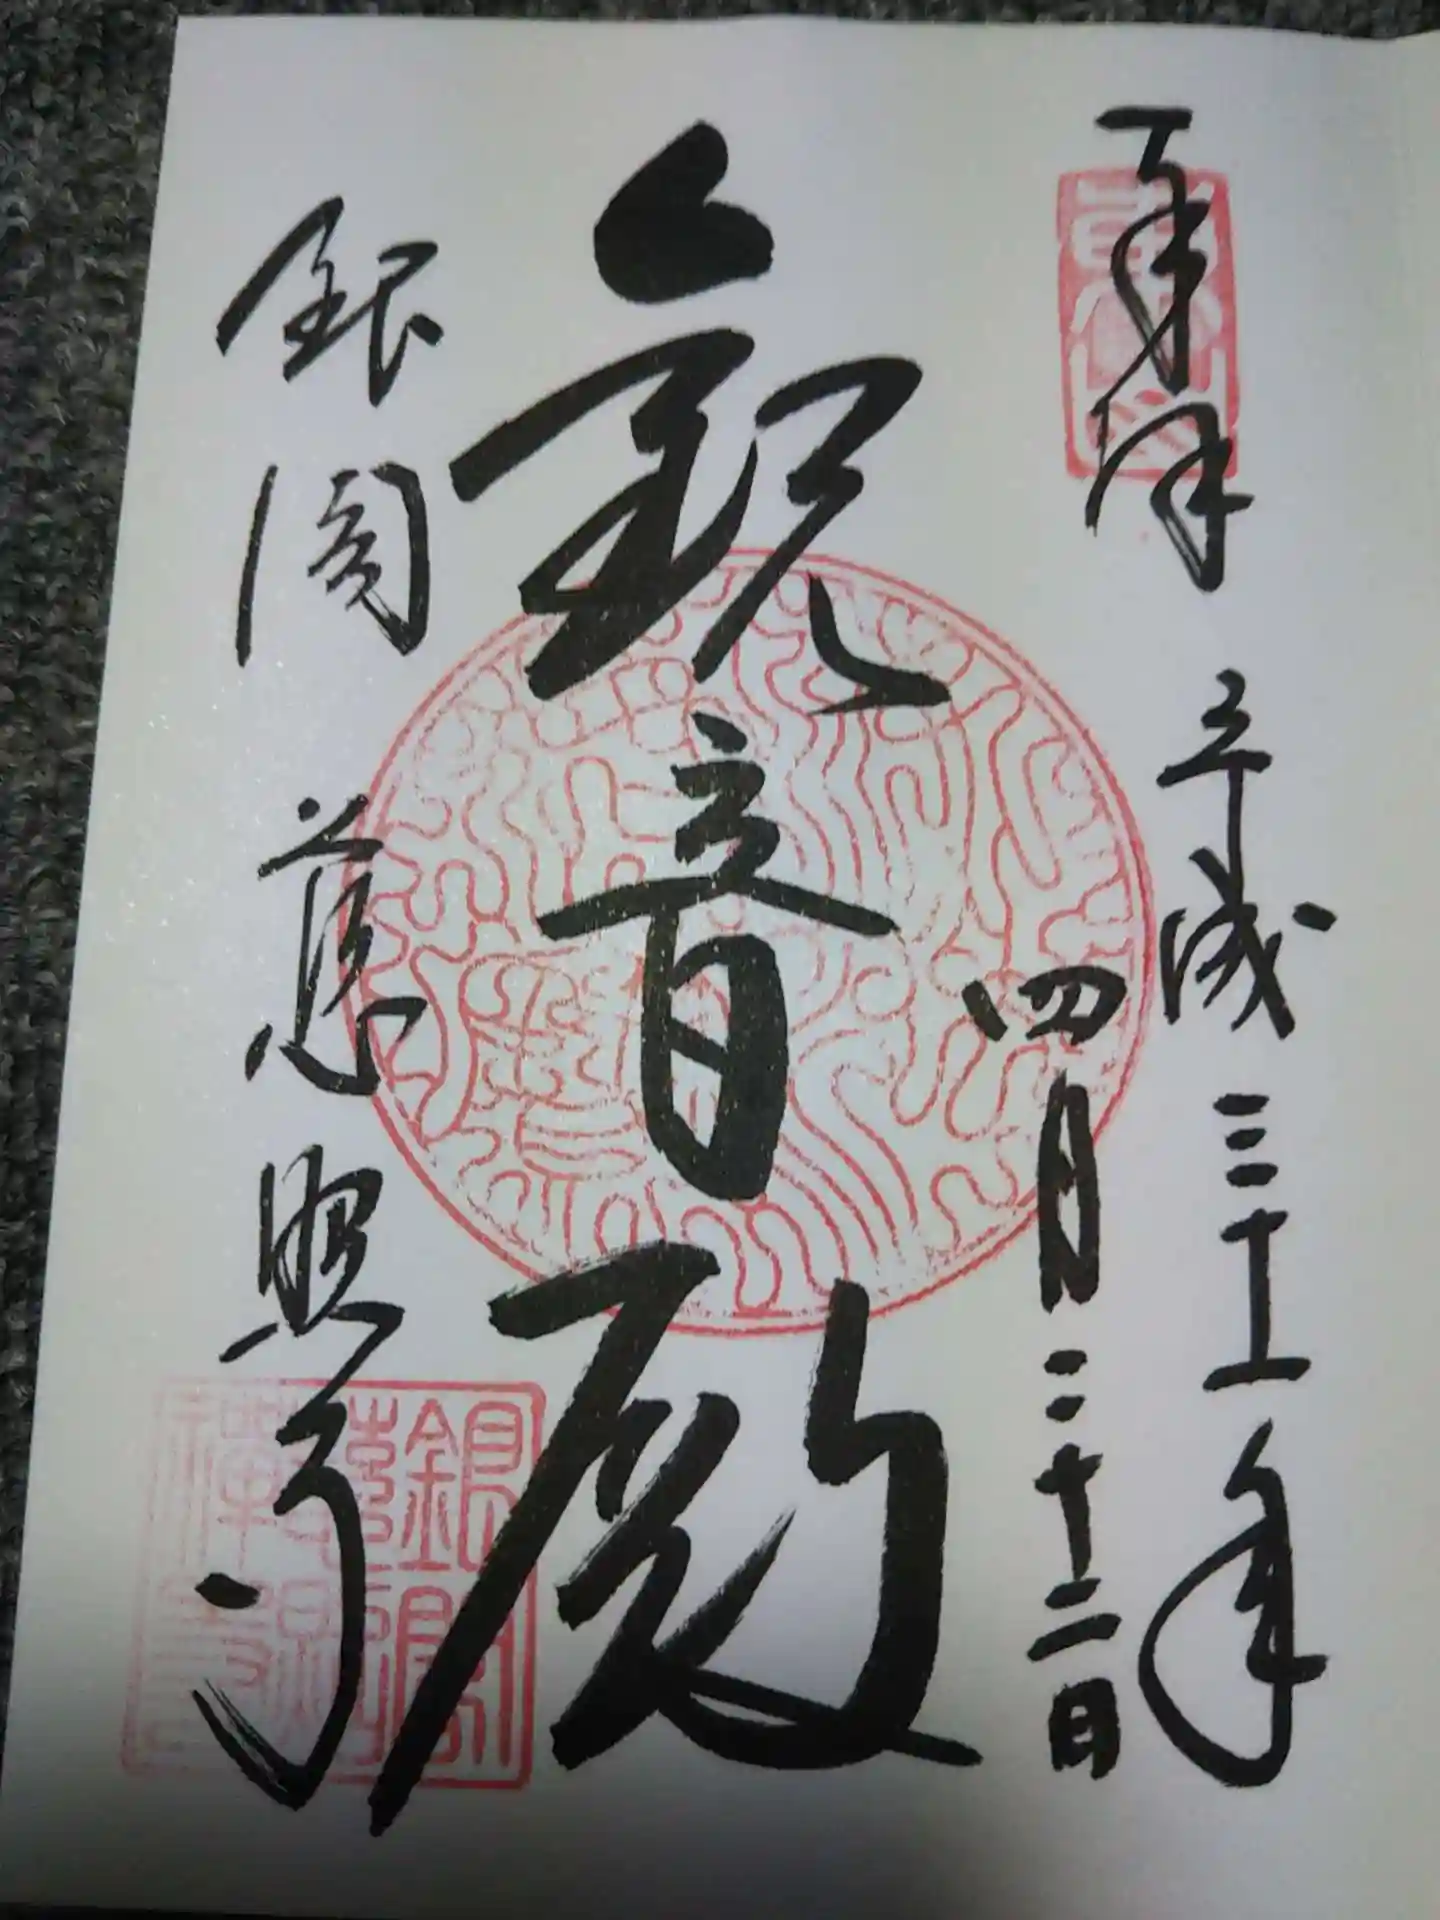 奉拝
平成三十一年
四月二十二日
観音殿
銀閣 慈照寺
銀閣慈照禅寺